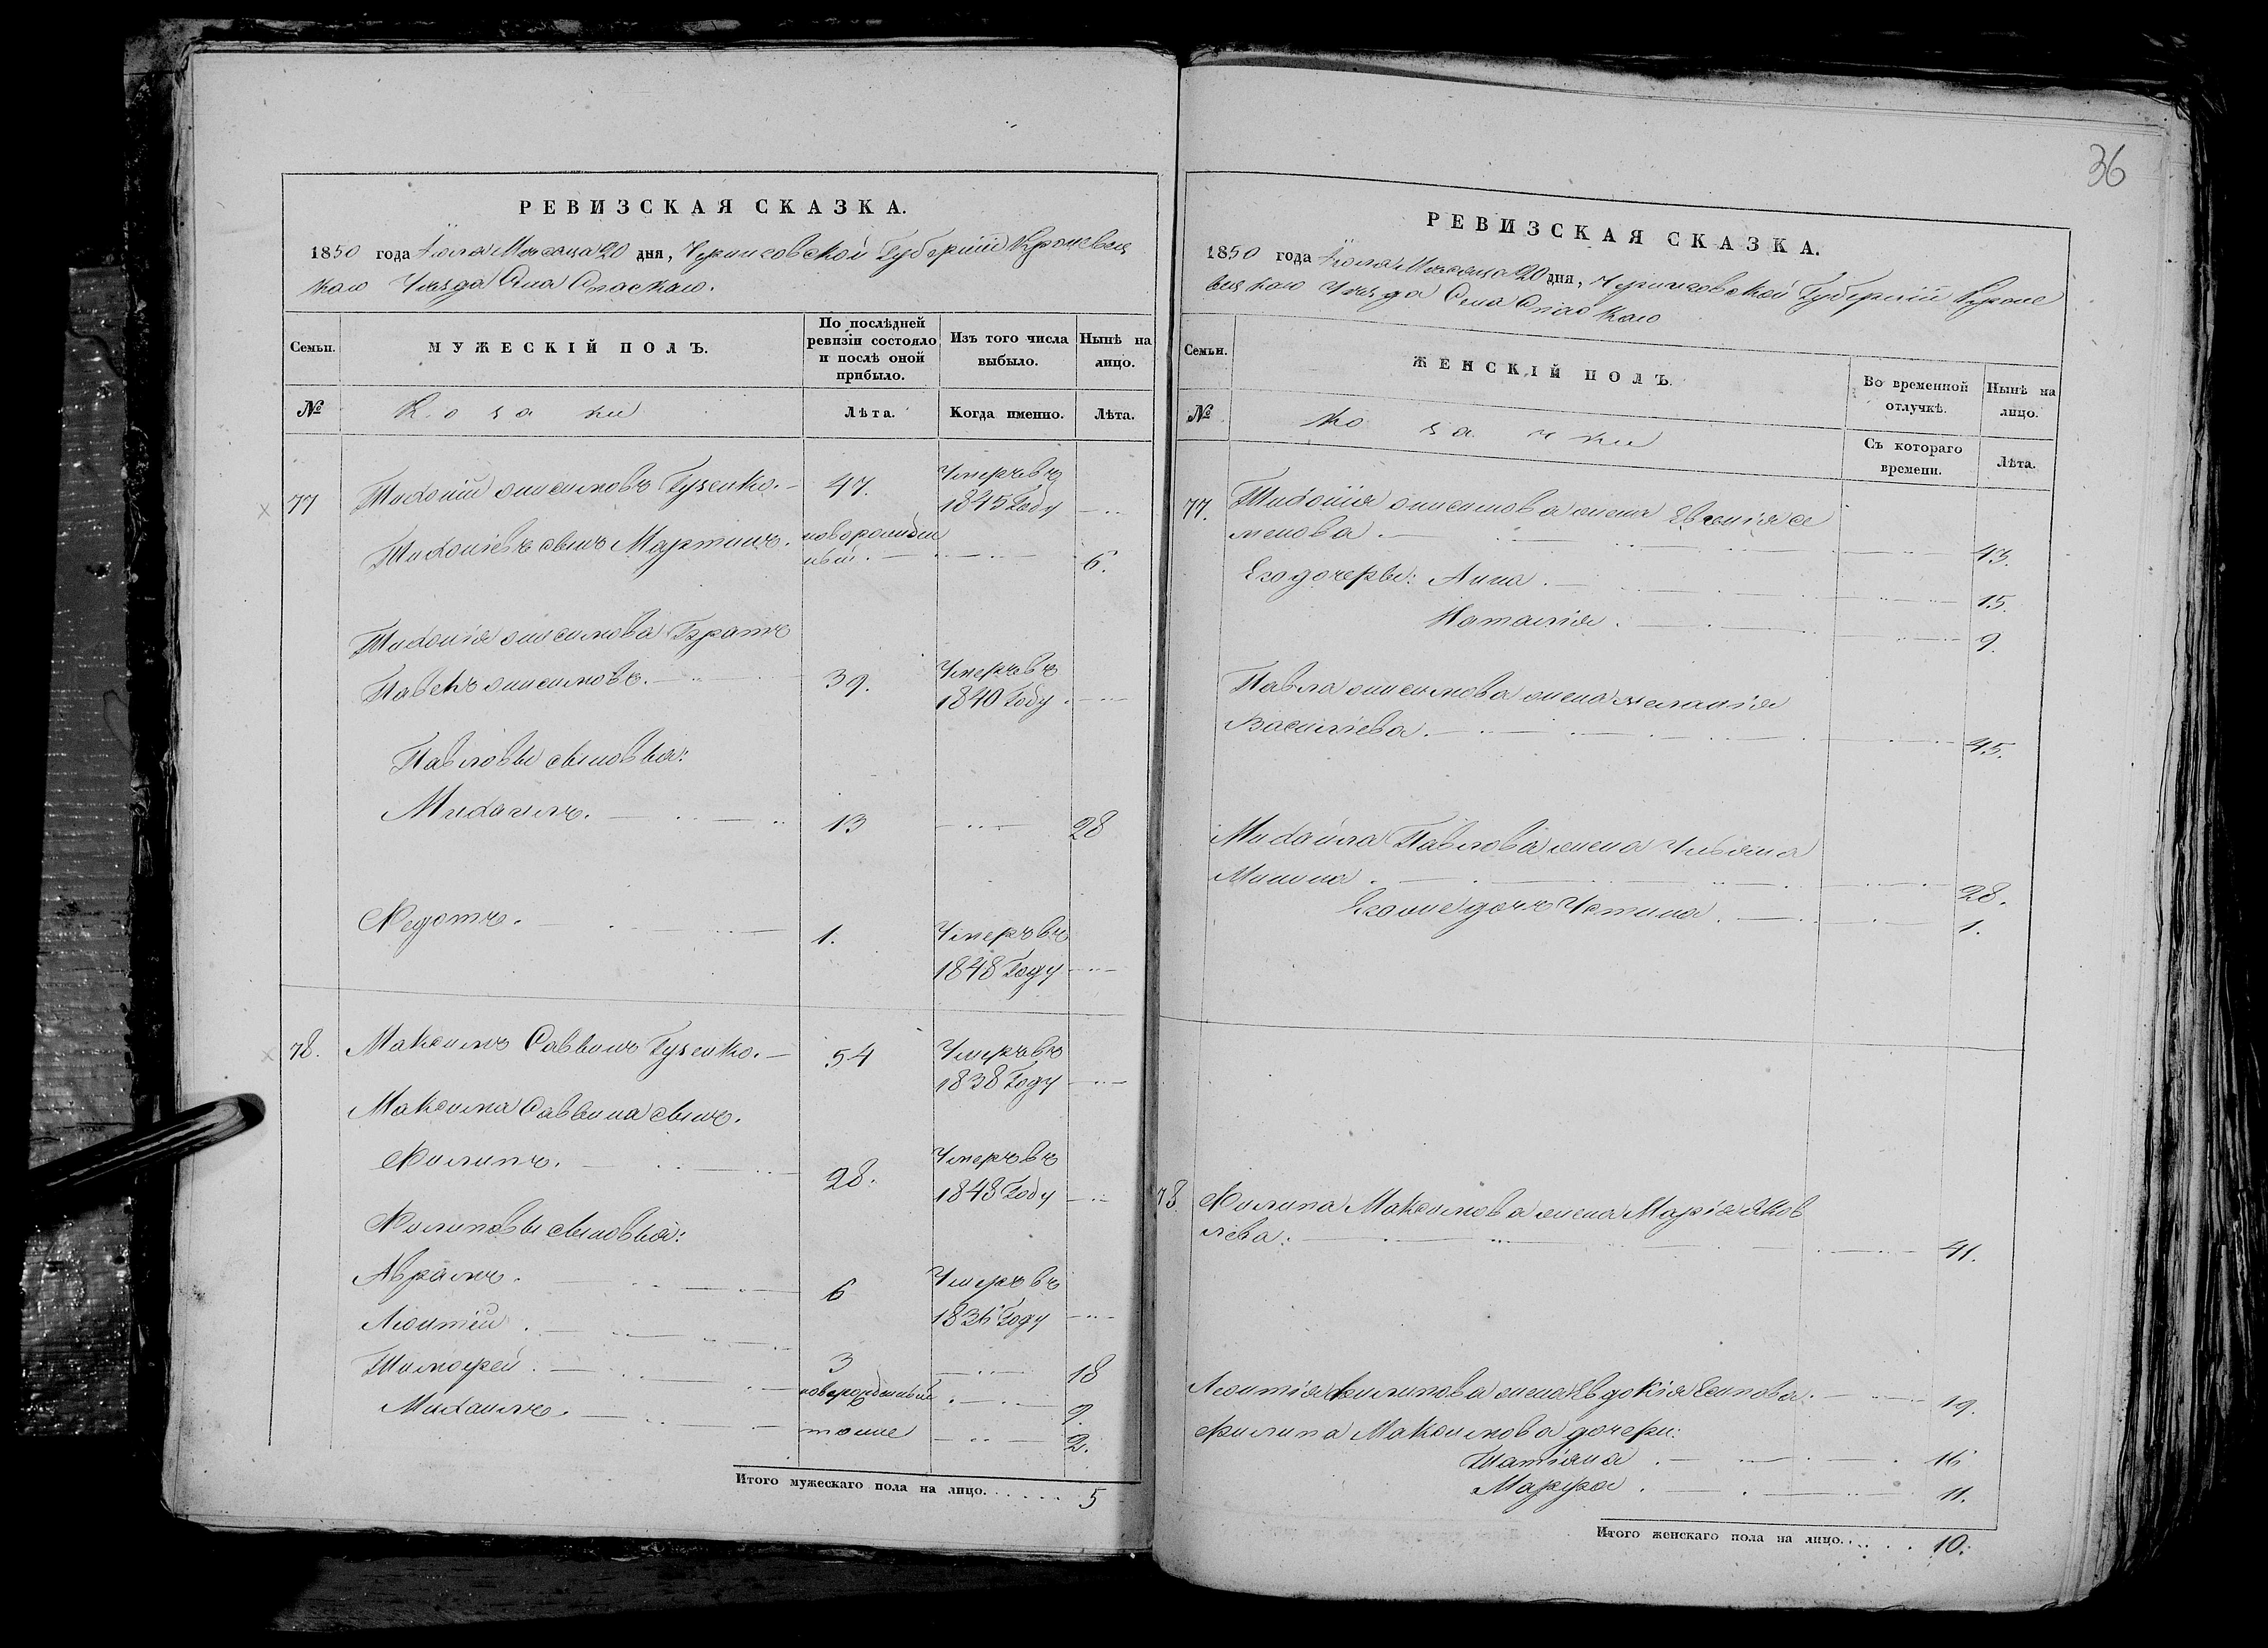 36
РЕВИЗСКАЯ СКАЗКА.
1850 года Іюля Месяца 20 дня, Черниговской Губерніи Кролевец
каго Уезда Села Спаскаго.
Семьи.
МУЖЕСКІЙ ПОЛЪ.
По послѣдней
ревизіи состояло
и послѣ оной
прибыло.
Изъ того числа
выбыло.
Нынѣ на
лицо.
№
Козаки
Лѣта.
Когда именно.
Лѣта.
77 Тихоній Онисимовъ Гузенко. 47. Умеръ въ
1845 Году
Тихоніевъ сынъ Мартинъ. новорожден
ный. 6.
Тихонія Онисимова Братъ
Павелъ Онисимовъ. 39. Умеръ въ
1840 Году.
Павловы сыновья:
Михаилъ. 13 28
Федотъ. 1. Умеръ въ
1848 Году
78. Максимъ Саввинъ Гузенко. 54 Умеръ въ
1838 Году
Максима Саввина сынъ.
Филипъ. 28. Умеръ въ
1848 Году
Филиповы сыновья:
Аврамъ. 6 Умеръ въ
1836 Году
Леонтій. 3 18
Тимофей. новорожденный. 9.
Михаилъ. тоже 2.
Итого мужескаго пола на лицо. 5
РЕВИЗСКАЯ СКАЗКА.
1850 года Іюля Месяца 20 дня, Черниговской Губерніи Кроле
вецкаго Уезда Села Спаскаго
Семьи.
ЖЕНСКІЙ ПОЛЪ.
Во временной
отлучкѣ.
Нынѣ на
лицо.
№
Козачки
Съ котораго
времени.
Лѣта.
77. Тихонія Онисимова жена Евгенія Се
менова. 43.
Его дочеры: Анна. 15.
Наталія. 9.
Павла Онисимова жена Меланія
Василіева. 45.
Михаила Павлова жена Ульяна
Минина. 28.
Егоже дочь Устина. 1.
78. Филипа Максимова жена Марія Яков
лева. 41.
Леонтія Филипова жена Евдокія Есипова. 19.
Филипа Максимова дочери:
Татіяна. 16
Марфа. 11.
Итого женскаго пола на лицо. 10.